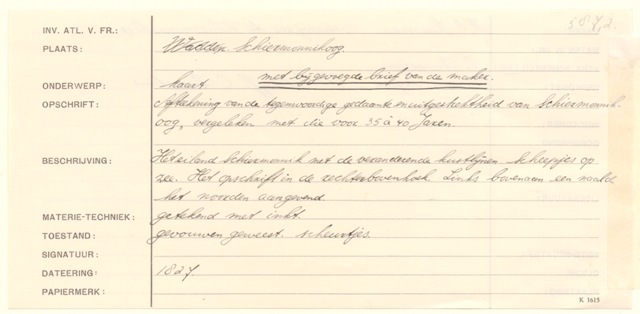 587,2.
INV. ATL. V. FR.:
PLAATS: Wadden Schiermonnikoog.
met bijgevoegde brief van de maker.
ONDERWERP: kaart
OPSCHRIFT: Aftekening van de tegenwoordige gedaante en uitgestrektheid van Schiermonnik-
oog, vergeleken met die voor 35 à 40 Jaren.
BESCHRIJVING: Het eiland Schiermonnik met de veranderende kustlijnen scheepjes op
zee. Het opschrift in de rechterbovenhoek. Links bovenaan een naald
het noorden aangevend.
MATERIE-TECHNIEK: getekend met inkt.
TOESTAND: gevouwen geweest. scheurtjes.
SIGNATUUR:
DATEERING: 1827.
PAPIERMERK:
K 1615